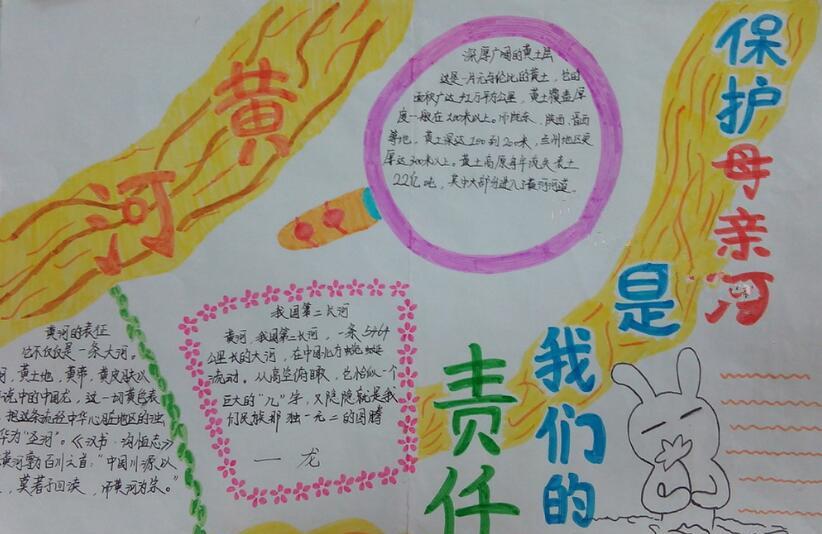 黄河
保护母亲河
是
我们的
责任
深厚广阔的黄土层
这是一片无与伦比的黄土，它的
面积广达 万平方公里，黄土覆盖厚
度一般在100米以上。 陕西、
等地，黄土深达100到200米，兰州地区更
厚达300米以上。黄土高原每年流失表土
22亿吨，其中大部分进入了黄河河道。
我国第二长河
黄河，我国第二长河，一条5464
公里长的大河，在中国北方蜿蜒
流动。从高空俯瞰，它恰似一个
巨大的"几"字，又隐隐就是我
们民族那独一无二的图腾
一 龙
黄河的表征
它不仅仅是一条大河。
河，黄土地，黄帝，黄皮肤以
说中的中国龙，这一切黄色表
把这条流经中华心脏地区的浊
华为"圣河"。《汉书·沟恤志》
黄河尊为百川之首："中国川源以
，莫若于四渎，而黄河为宗。"